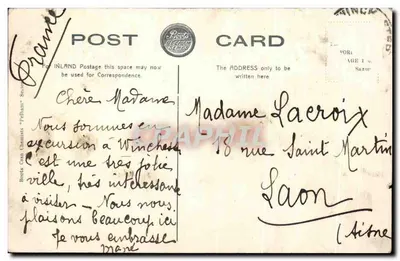 France
POST CARD
For INLAND Postage this space may now
be used for Correspondence.
The ADDRESS only to be
written here.
Chère Madame
Nous sommes en
excursion à Winchester
C'est une très jolie
ville, très intéressante
à visiter - Nous nous
plaisons beaucoup ici
Je vous embrasse
Madame Lacroix
18 rue Saint Martin
Laon
(Aisne